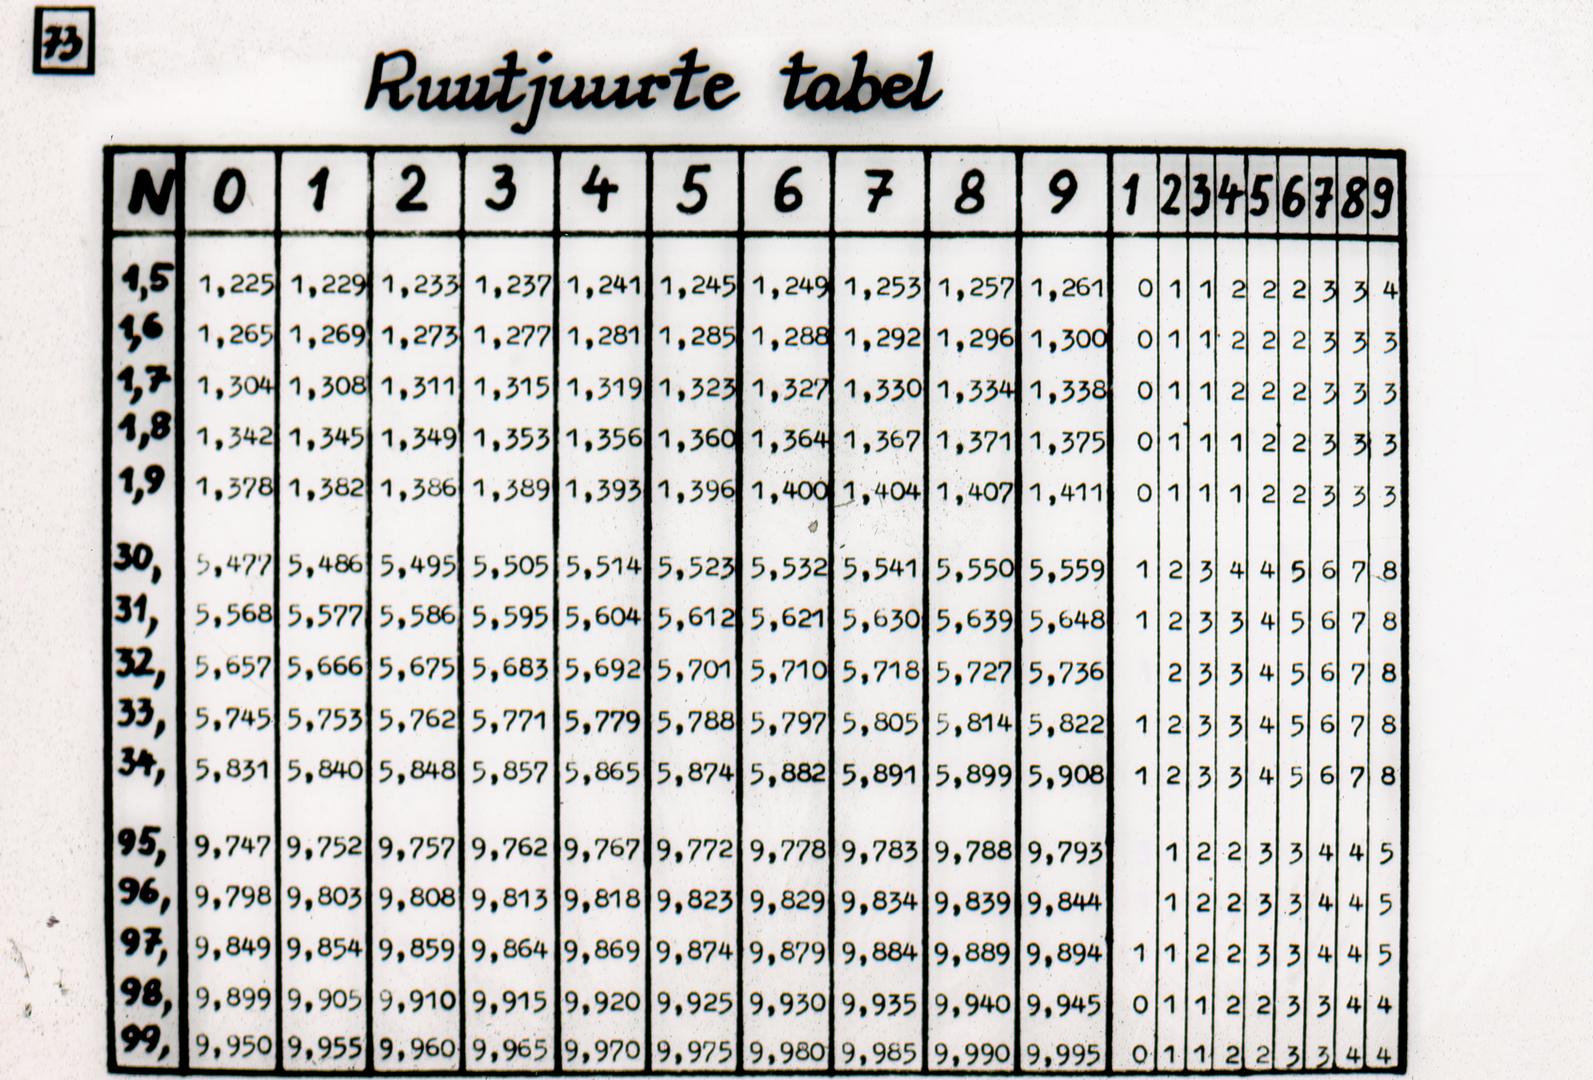 73
Ruutjuurte tabel
N 0 1 2 3 4 5 6 7 8 9 1 2 3 4 5 6 7 8 9
1,5 1,225 1,229 1,233 1,237 1,241 1,245 1,249 1,253 1,257 1,261 0 1 1 2 2 2 3 3 4
1,6 1,265 1,269 1,273 1,277 1,281 1,285 1,288 1,292 1,296 1,300 0 1 1 2 2 2 3 3 3
1,7 1,304 1,308 1,311 1,315 1,319 1,323 1,327 1,330 1,334 1,338 0 1 1 2 2 2 3 3 3
1,8 1,342 1,345 1,349 1,353 1,356 1,360 1,364 1,367 1,371 1,375 0 1 1 1 2 2 3 3 3
1,9 1,378 1,382 1,386 1,389 1,393 1,396 1,400 1,404 1,407 1,411 0 1 1 1 2 2 3 3 3
30, 5,477 5,486 5,495 5,505 5,514 5,523 5,532 5,541 5,550 5,559 1 2 3 4 4 5 6 7 8
31, 5,568 5,577 5,586 5,595 5,604 5,612 5,621 5,630 5,639 5,648 1 2 3 3 4 5 6 7 8
32, 5,657 5,666 5,675 5,683 5,692 5,701 5,710 5,718 5,727 5,736 2 3 3 4 5 6 7 8
33, 5,745 5,753 5,762 5,771 5,779 5,788 5,797 5,805 5,814 5,822 1 2 3 3 4 5 6 7 8
34, 5,831 5,840 5,848 5,857 5,865 5,874 5,882 5,891 5,899 5,908 1 2 3 3 4 5 6 7 8
95, 9,747 9,752 9,757 9,762 9,767 9,772 9,778 9,783 9,788 9,793 1 2 2 3 3 4 4 5
96, 9,798 9,803 9,808 9,813 9,818 9,823 9,829 9,834 9,839 9,844 1 2 2 3 3 4 4 5
97, 9,849 9,854 9,859 9,864 9,869 9,874 9,879 9,884 9,889 9,894 1 1 2 2 3 3 4 4 5
98, 9,899 9,905 9,910 9,915 9,920 9,925 9,930 9,935 9,940 9,945 0 1 1 2 2 3 3 4 4
99, 9,950 9,955 9,960 9,965 9,970 9,975 9,980 9,985 9,990 9,995 0 1 1 2 2 3 3 4 4